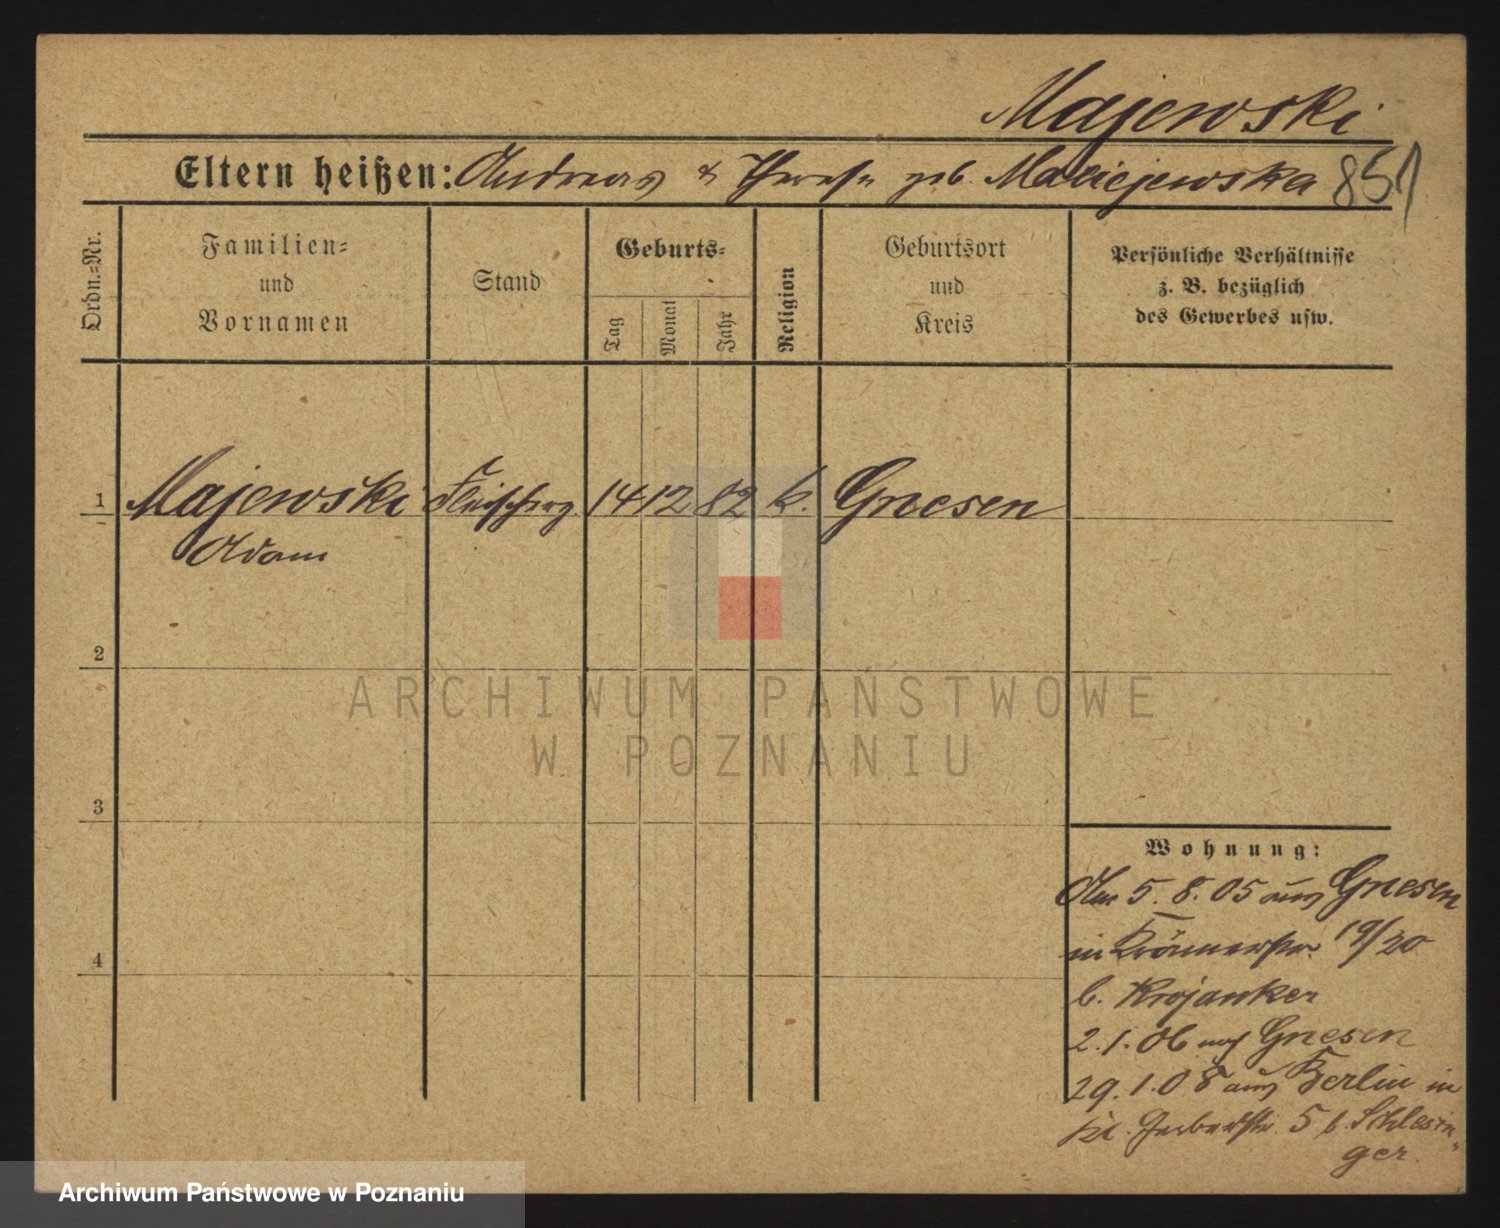 Majewski
Eltern heißen: Andreas & Therese geb. Maciejewska 851
Ordn.-Nr.
Familien-
und
Vornamen
Stand
Geburts-
Tag
Monat
Jahr
Religion
Geburtsort
und
Kreis
Persönliche Verhältnisse
z. B. bezüglich
des Gewerbes usw.
1 Majewski Fleischerg. 14 12 82 k. Gnesen
Adam
2
3
4
ARCHIWUM PAŃSTWOWE
W POZNANIU
Wohnung:
5. 8. 05 aus Gnesen
in 19/20
b. Krojanker
2. 1. 06 nach Gnesen
29. 1. 08 aus Berlin in
Gerberstr. 5 b. Schlesin-
ger.
Archiwum Państwowe w Poznaniu